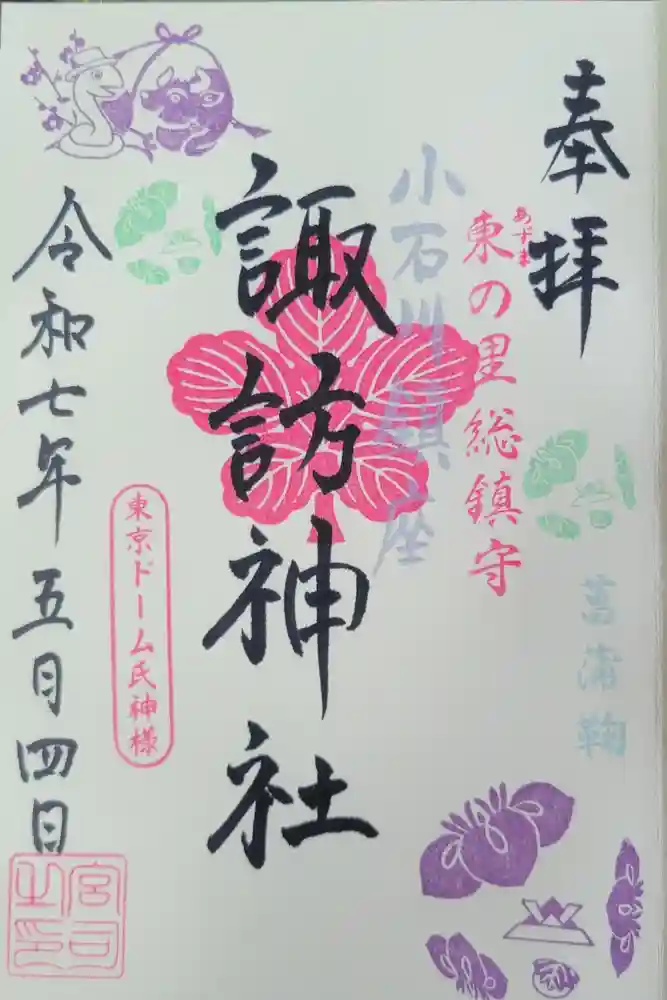 奉拝
あずま
東の里総鎮守
菖蒲鞠
小石川鎮座
諏訪神社
東京ドーム氏神様
令和七年五月四日
宮司之印